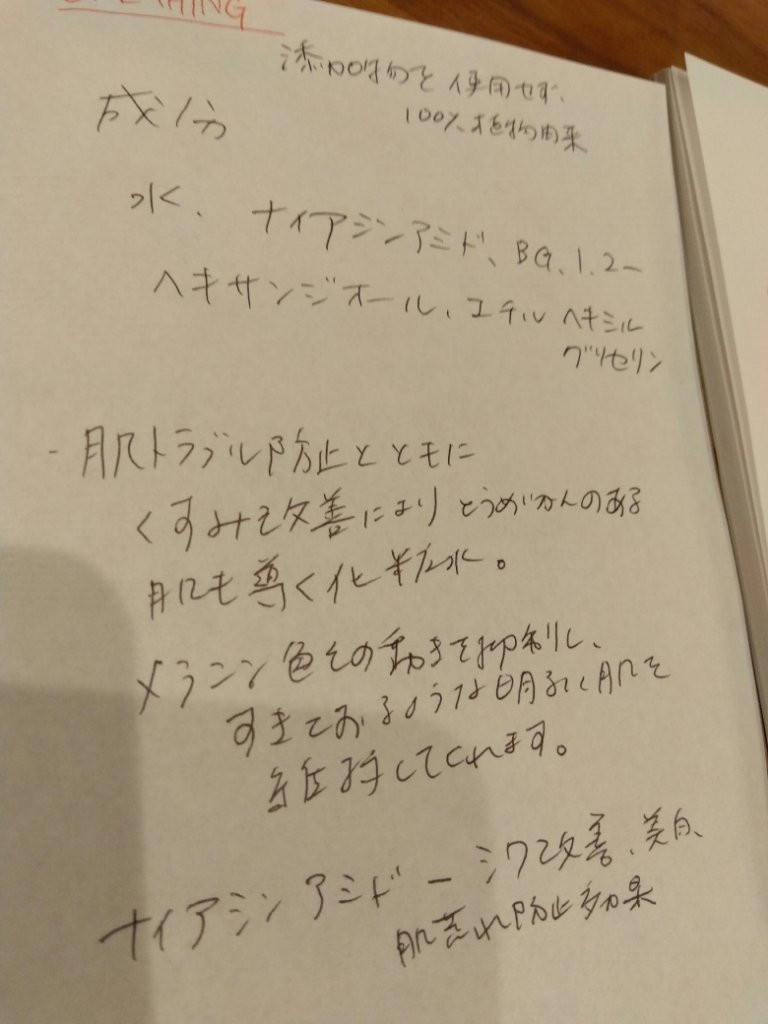 THING
添加物を使用せず、
100%植物由来
成分
水、ナイアシンアミド、BG、1.2ー
ヘキサンジオール、エチルヘキシル
グリセリン
- 肌トラブル防止とともに
くすみを改善によりとうめいかんのある
肌も導く化粧水。
メラニン色その動きを抑制し、
すきとおるような明るい肌を
維持してくれます。
ナイアシンアミド ー シワ改善、美白、
肌荒れ防止効果